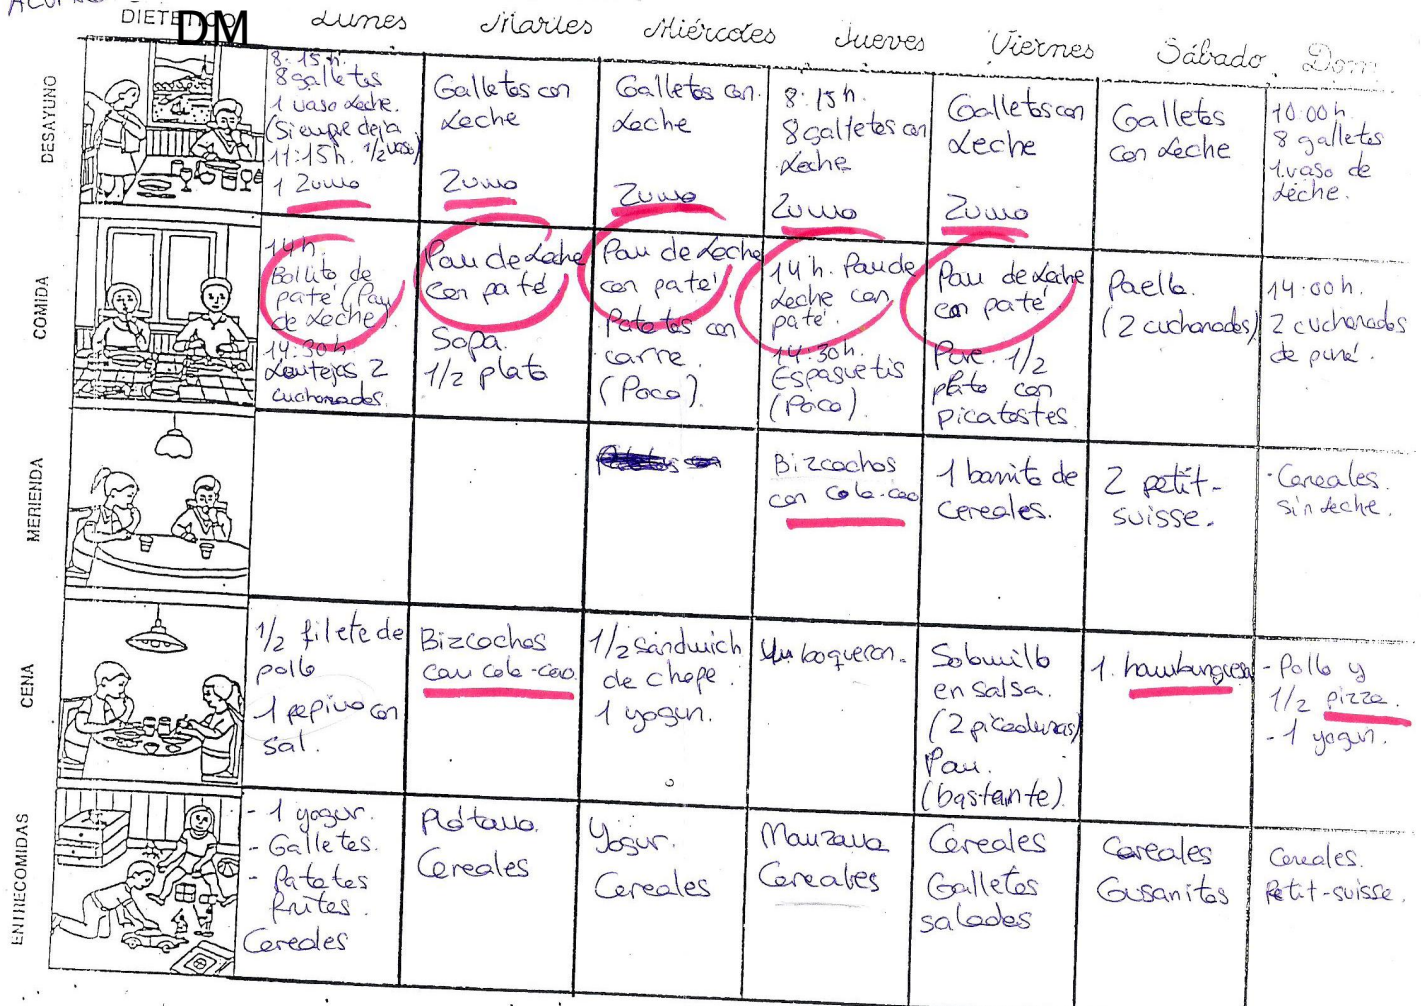 DIETETICO
DM
Lunes
Martes
Miércoles
Jueves
Viernes
Sábado
Dom
DESAYUNO
8:15h.
8 galletas
1 vaso Leche.
(Siempre deja
11:15h. 1/2 vaso)
1 Zumo
Galletas con
Leche
Zumo
Galletas con.
Leche
Zumo
8:15h.
8 galletas con
Leche
Zumo
Galletas con
Leche
Zumo
Galletas
con Leche
10:00h
8 galletas
1 vaso de
Leche.
COMIDA
14h
Bollito de
paté (Pan
de Leche).
14:30h
Lentejas 2
cucharadas.
Pan de Leche
con paté
Sopa.
1/2 plato
Pan de Leche
con paté
Patatas con
carne.
(Poco).
14h. Pan de
Leche con
paté.
14:30h.
Espaguetis
(Poco).
Pan de Leche
con paté
Pure 1/2
plato con
picatostes.
Paella.
(2 cucharadas)
14:00h.
2 cucharadas
de puré.
MERIENDA
Bizcochos
con cola-cao
1 barrita de
cereales.
2 petit-
suisse.
- Cereales.
sin Leche.
CENA
1/2 filete de
pollo
1 pepino con
sal.
Bizcochos
con cola-cao.
1/2 sándwich
de chope.
1 yogur.
Un boqueron.
Solomillo
en salsa.
(2 picaduras)
Pan.
(bastante).
1. hamburguesa
- Pollo y
1/2 pizza.
- 1 yogur.
ENTRECOMIDAS
- 1 yogur.
- Galletas.
- Patatas
fritas.
Cereales
Plátano.
Cereales
Yogur.
Cereales
Manzana
Cereales
Cereales
Galletas
saladas
Cereales
Gusanitos
Cereales.
Petit-suisse.